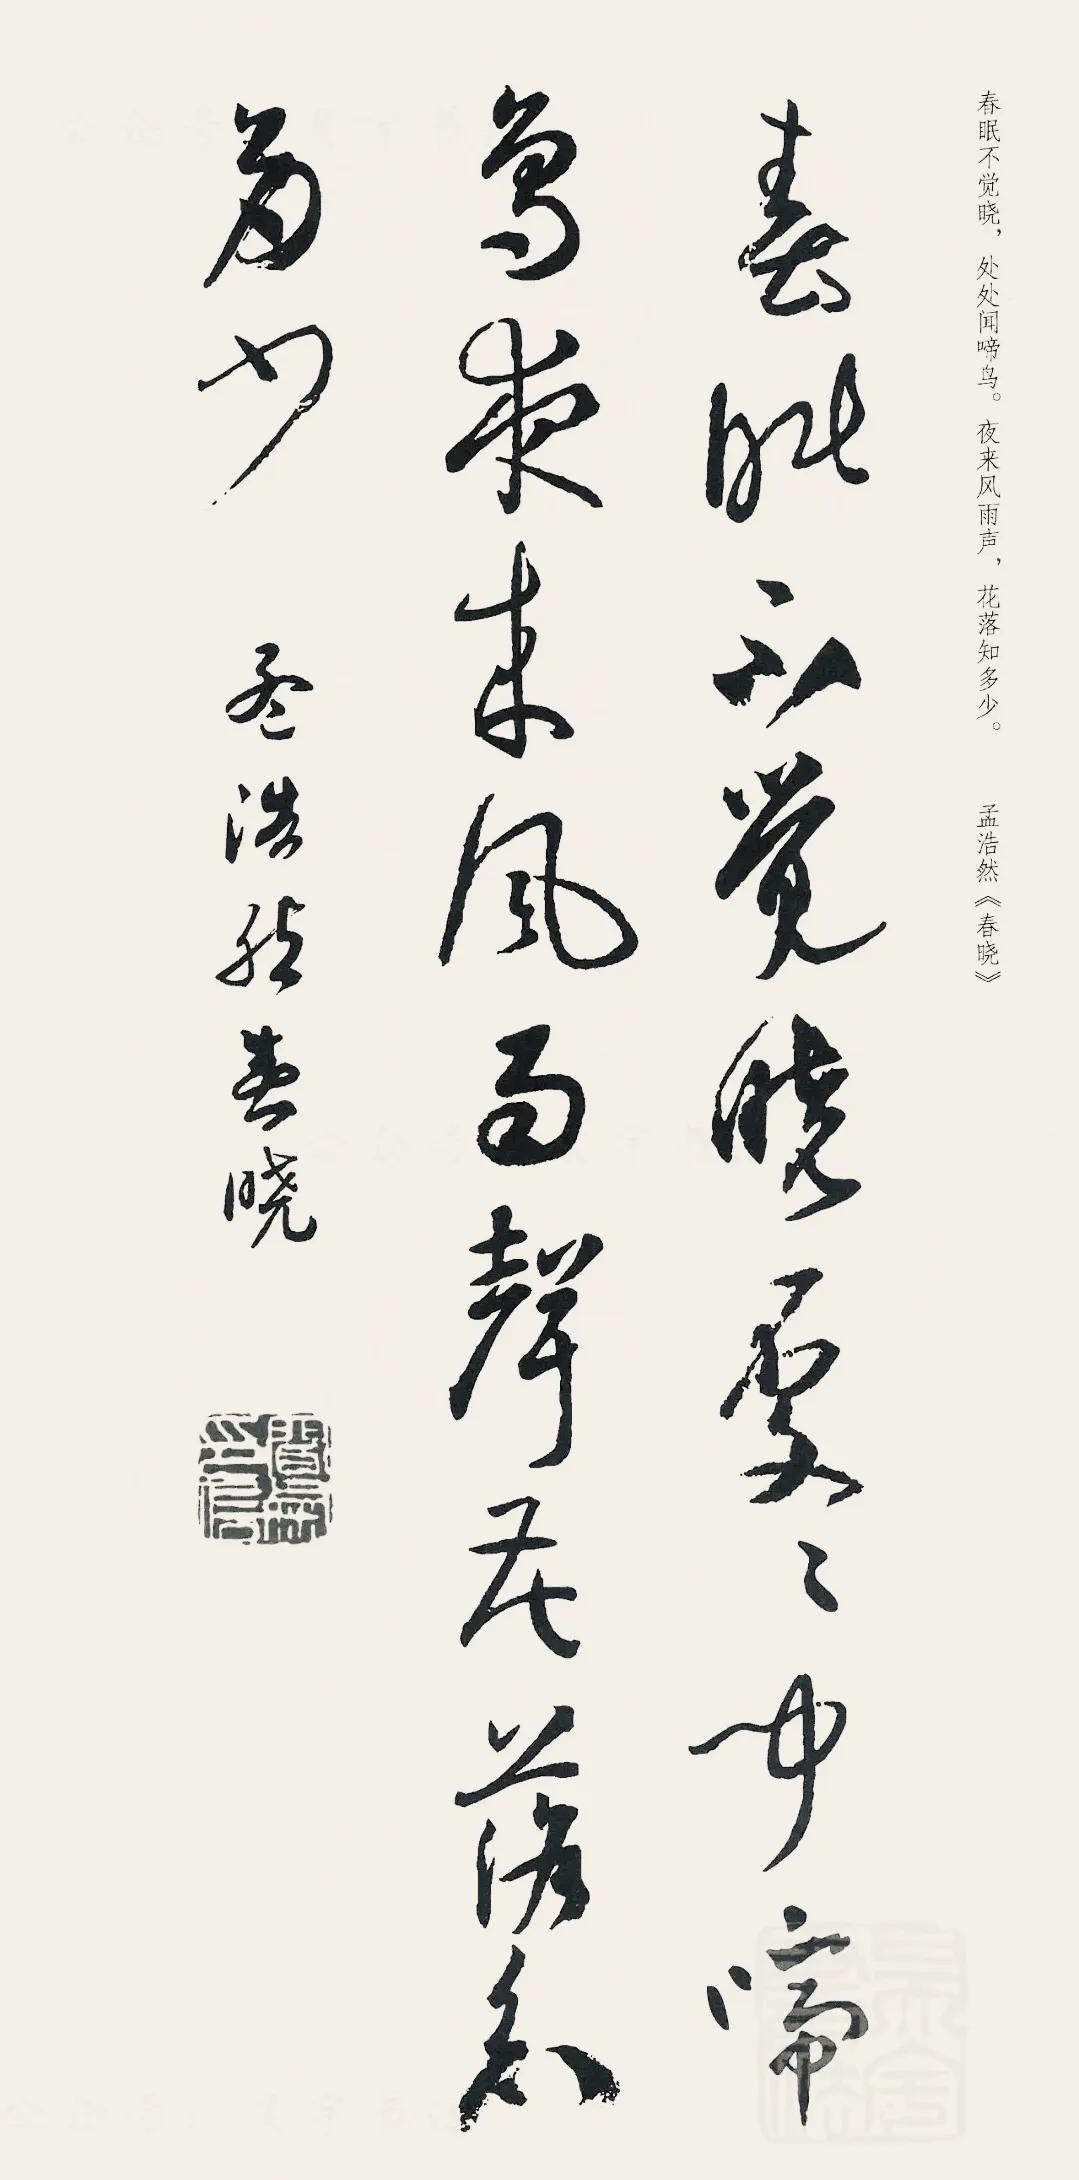 春眠不觉晓，处处闻啼鸟。夜来风雨声，花落知多少。 孟浩然《春晓》
春眠不覺曉處々聞啼
鳥夜来風雨聲花落知
多少 孟浩然春曉